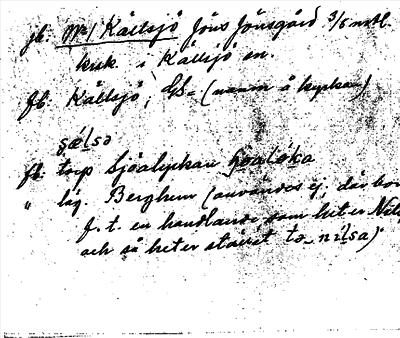 fb. N:r 1 Källsjö Jöns Jönsgård 3/8 mtl.
kirk. i Källsjö sn.
fb. Källsjö, GS= (namn å kyrkan)
sǽlsə
fb. torp Sjöalyckan
" läg. Berghem (användes ej, där bor
f. t. en handlande som heter Nils
och så heter stället tə nilsa)